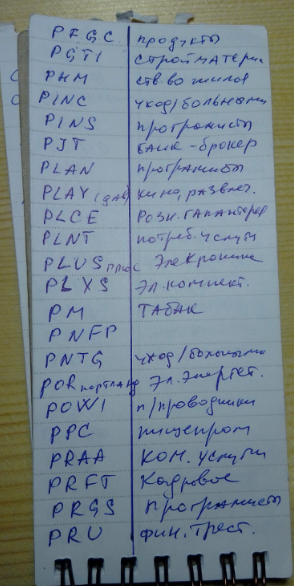 PFGC продукты
PGTI стройматери
PHM ств-во жилья
PINC уход/больными
PINS програмисты
PJT банк-брокер
PLAN програмисты
PLAY (дэйв) кино, развлеч.
PLCE Розн. галантерея
PLNT потреб. услуги
PLUS плюс Электроника
PLXS Эл. компект.
PM ТАБАК
PNFP
PNTG уход/больными
POR портланд Эл. Энергет.
POWI п/проводники
PPC пищепром
PRAA КОМ. Услуги
PRFT Кадровое
PRGS програмисты
PRU фин. Трест.